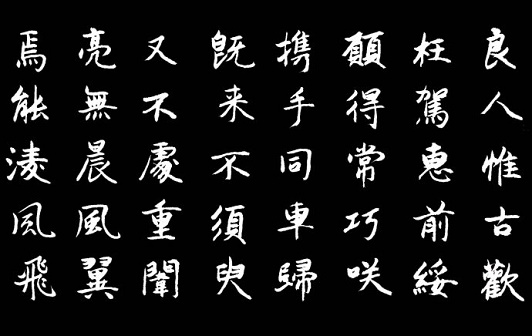 良人惟古歡
枉駕惠前綏
願得常巧咲
携手同車歸
既来不須臾
又不處重闈
亮無晨風翼
焉能淩风飛